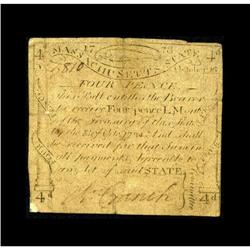 4 17 78 4
MASSACHUSETTS STATE
810 October 16
FOUR PENCE
This Bill entitles the Bearer
to receive Four pence L. Mo. out
of the Treasury of this State
by the 18th Octr. 1784. And shall
be received for that Sum in
all payments, Agreeable to
an Act of said STATE.
Committee
4d 4d
R Cranch